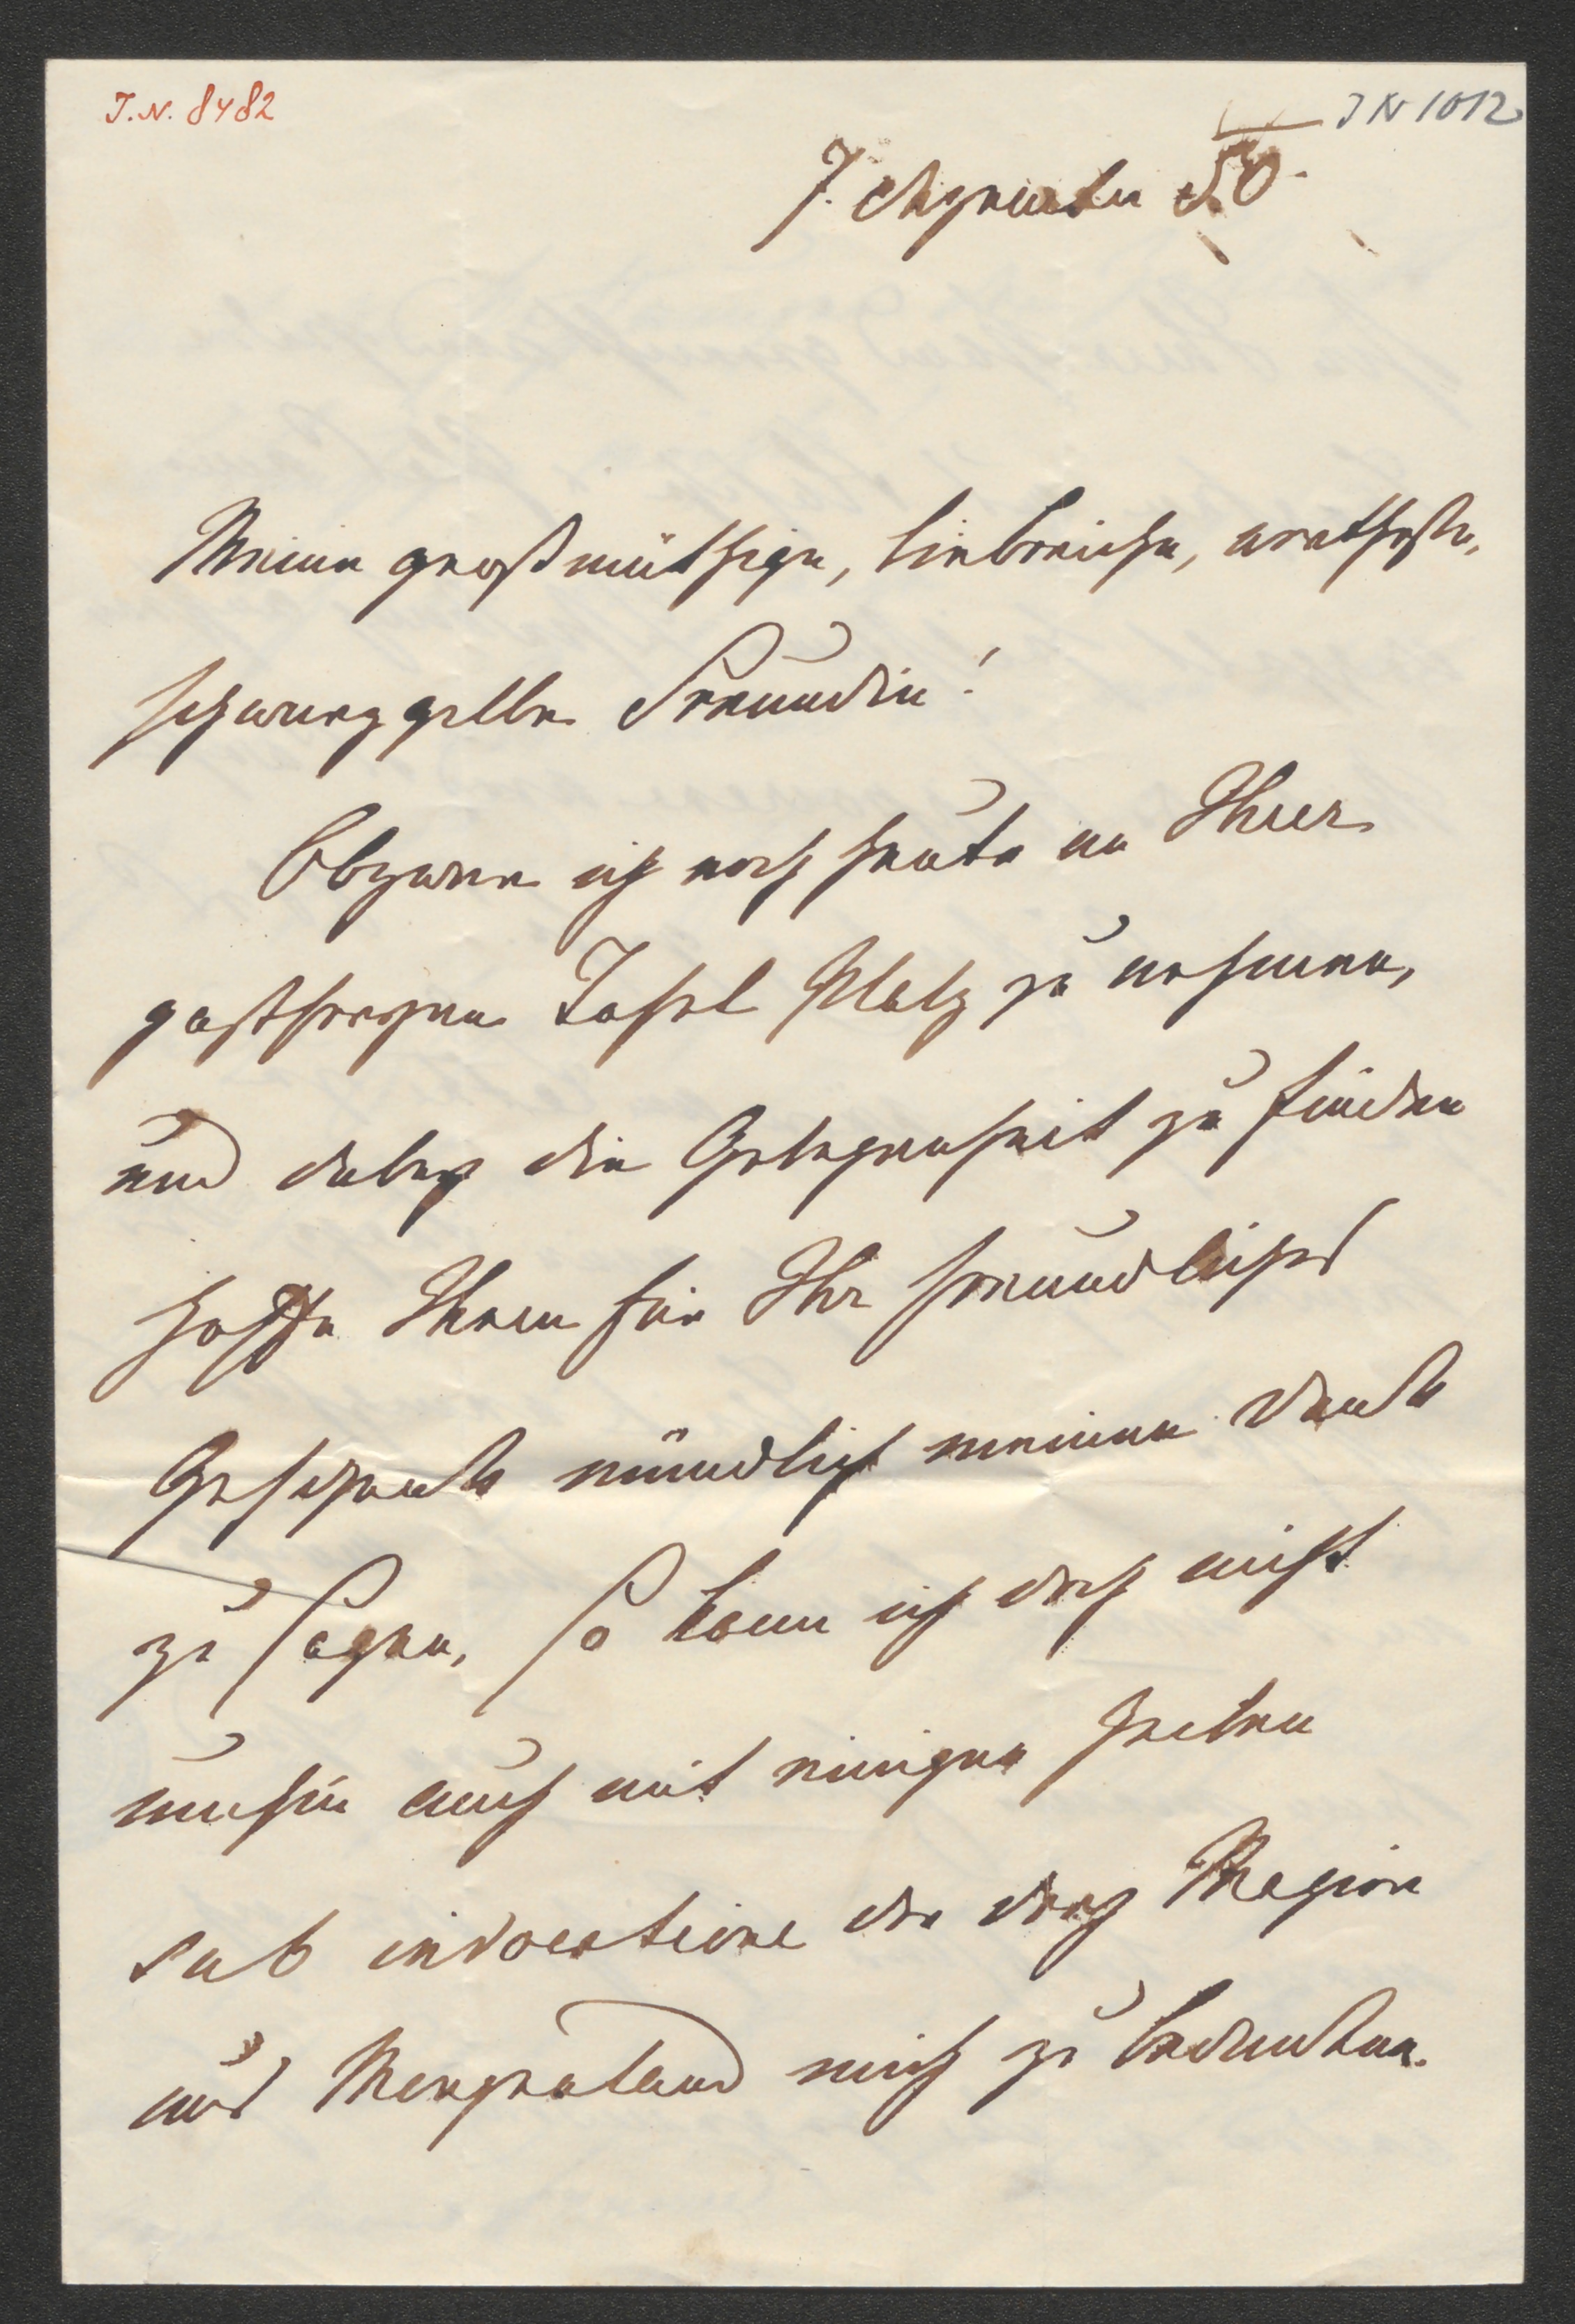 J.N. 8482
JN 1012
7. 50.
Meine großmüthige, liebreiche,
schwarzgelbe Freundin!
Obzwar ich noch heute an Ihrer
Tafel Platz zu nehmen,
und dabey die Gelegenheit zu finden
hoffe Ihnen für Ihr freundliches
Geschenk mündlich meinen Dank
zu sagen, so kann ich doch nicht
umhin auch mit einigen Zeilen
sub invocatione der drey Magier
aus Morgenland mich zu bedanken.